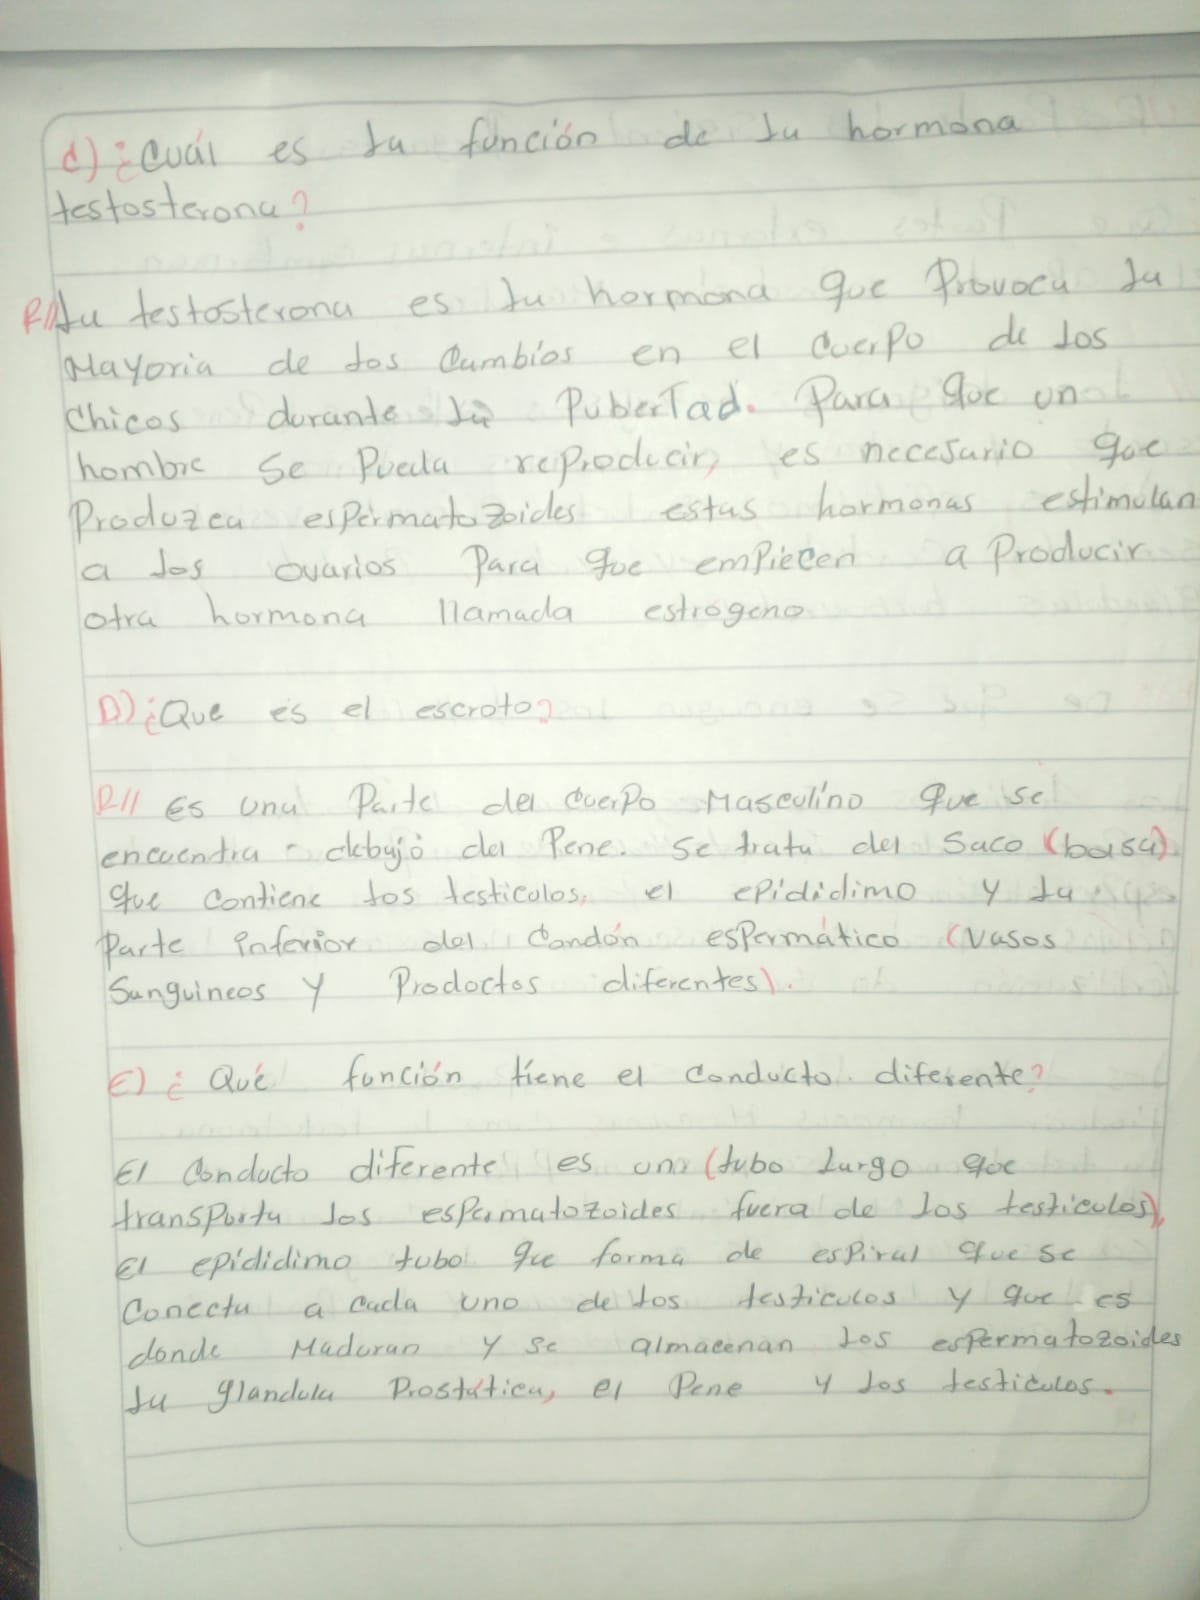 c) ¿Cuál es la función de la hormona
testosterona?
R// La testosterona es la hormona que Provoca la
Mayoria de los Cambios en el Cuerpo de los
Chicos durante la PuberTad. Para que un
hombre se Pueda reProducir, es necesario que
Produzca esPermatozoides estas hormonas estimulan
a los ovarios Para que emPiecen a Producir
otra hormona llamada estrógeno
D) ¿Que es el escroto?
R// Es una Parte del CuerPo Masculino que se
encuentra debajo del Pene. Se trata del Saco (bolsa)
que Contiene los testiculos, el ePididimo y la
Parte inferior del Condón esPermático (Vasos
Sanguineos y Productos diferentes).
E) ¿Qué función tiene el Conducto diferente?
El Conducto diferente es un (tubo Largo que
transPorta los espermatozoides fuera de los testiculos),
El ePididimo tubo que forma de esPiral que se
Conecta a Cada uno de los testiculos y que es
donde Maduran y se almacenan los espermatozoides
la glandula Prostática, el Pene y los testiculos.